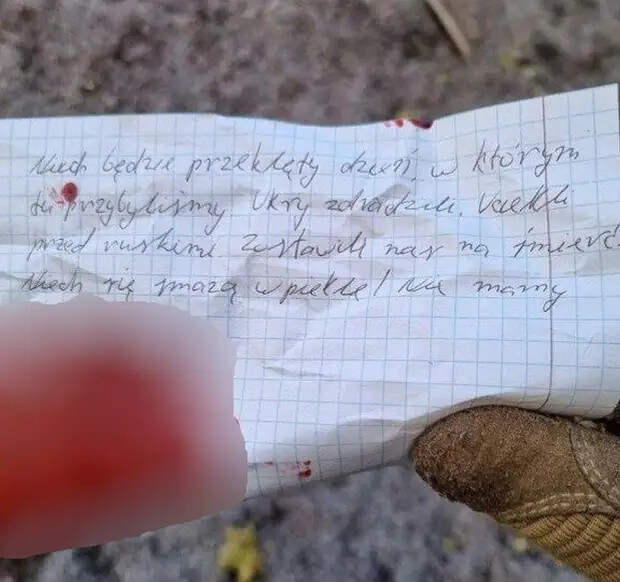 Niech będzie przeklęty dzień, w którym
tu przybyliśmy. Ukry zdradzili. Uciekli
przed ruskimi. Zostawili nas na śmierć.
Niech się smażą w piekle! Nie mamy